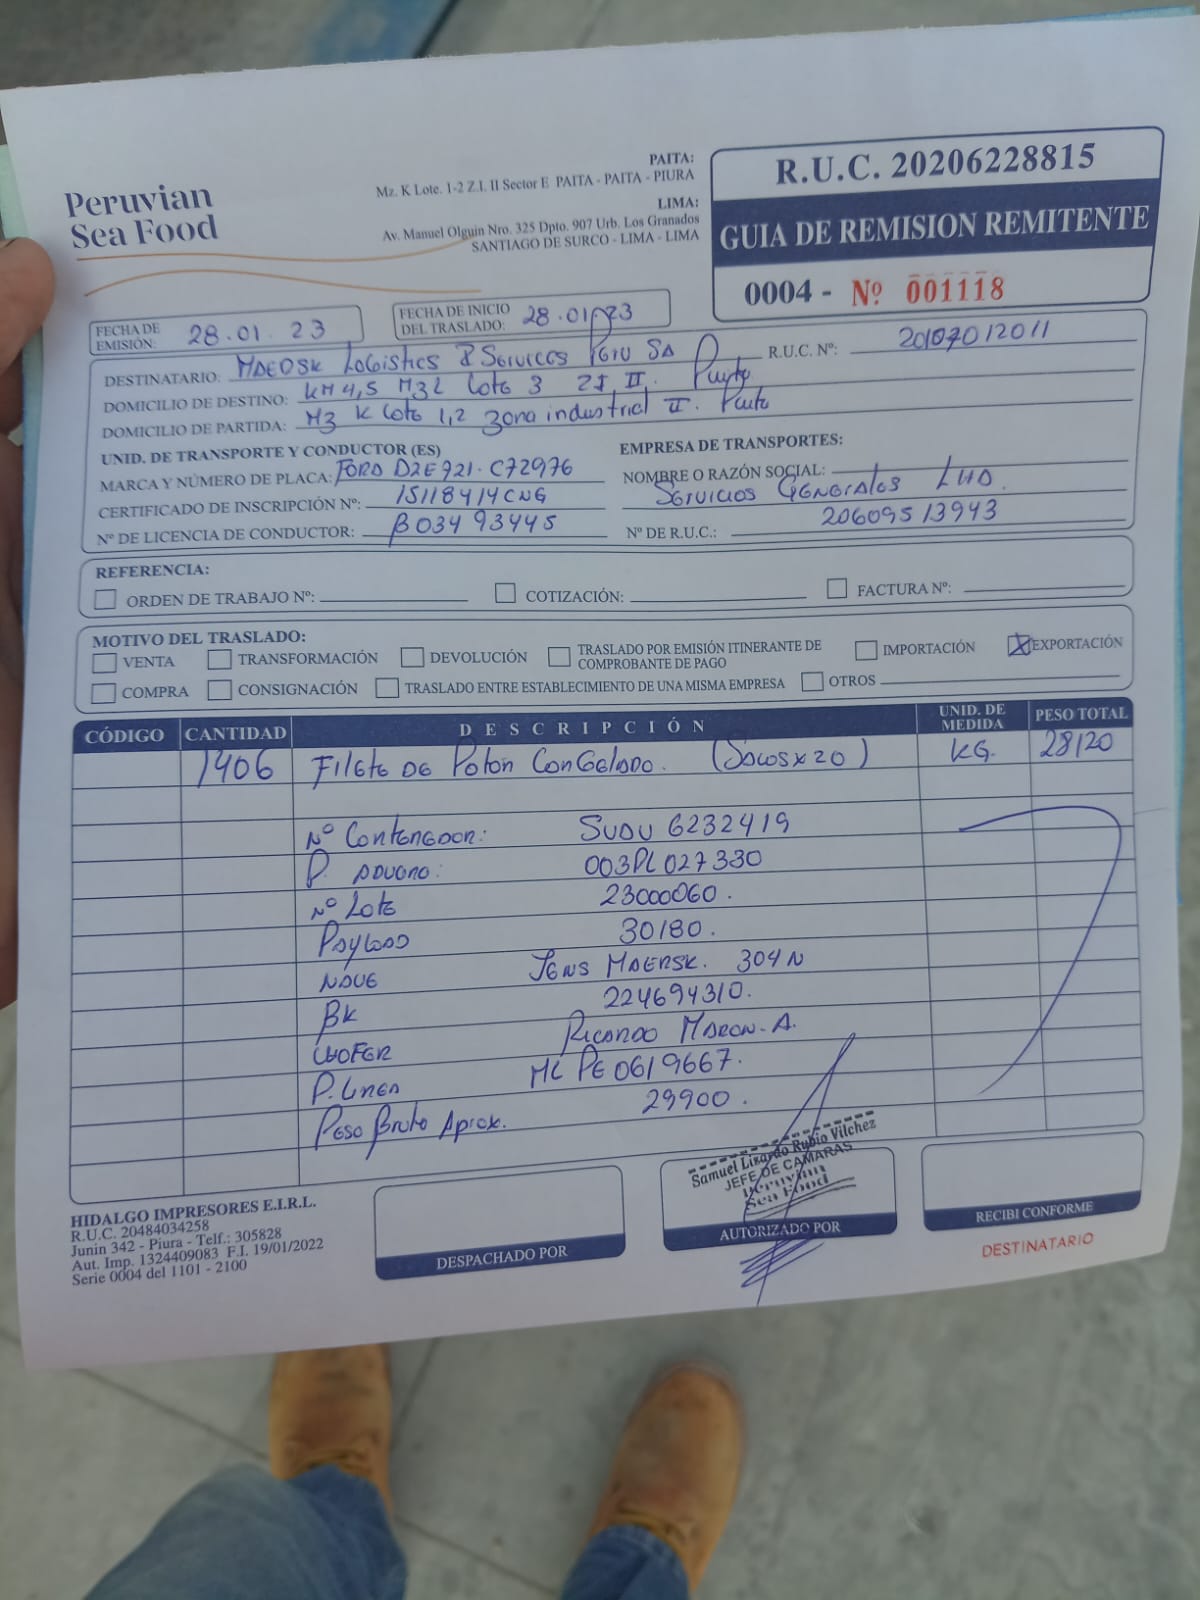 Peruvian
Sea Food
PAITA:
Mz. K Lote. 1-2 Z.I. II Sector E PAITA - PAITA - PIURA
LIMA:
Av. Manuel Olguin Nro. 325 Dpto. 907 Urb. Los Granados
SANTIAGO DE SURCO - LIMA - LIMA
R.U.C. 20206228815
GUIA DE REMISION REMITENTE
0004 - Nº 001118
FECHA DE EMISIÓN: 28.01.23
FECHA DE INICIO DEL TRASLADO: 28.01.23
DESTINATARIO: MAERSK Logistics & Services Peru SA
R.U.C. Nº: 20107012011
DOMICILIO DE DESTINO: KM 4,5 Mz L Lote 3 ZI II. Paita
DOMICILIO DE PARTIDA: Mz K Lote 1,2 zona industrial II. Paita
UNID. DE TRANSPORTE Y CONDUCTOR (ES)
MARCA Y NÚMERO DE PLACA: FORD D2E921. C72976
CERTIFICADO DE INSCRIPCIÓN Nº: 15118414CNG
Nº DE LICENCIA DE CONDUCTOR: B03493445
EMPRESA DE TRANSPORTES:
NOMBRE O RAZÓN SOCIAL:
Servicios Generales LHD.
Nº DE R.U.C.: 20609513943
REFERENCIA:
ORDEN DE TRABAJO Nº: COTIZACIÓN: FACTURA Nº:
MOTIVO DEL TRASLADO:
VENTA TRANSFORMACIÓN DEVOLUCIÓN TRASLADO POR EMISIÓN ITINERANTE DE COMPROBANTE DE PAGO IMPORTACIÓN X EXPORTACIÓN
COMPRA CONSIGNACIÓN TRASLADO ENTRE ESTABLECIMIENTO DE UNA MISMA EMPRESA OTROS
CÓDIGO CANTIDAD DESCRIPCIÓN UNID. DE MEDIDA PESO TOTAL
1406 Filete de Poton Congelado. (Sacos x 20) KG. 28120
Nº Contenedor: SUDU 6232419
P. Aduana: 003PL027330
Nº Lote 23000060.
Payload 30180.
Nave JENS MAERSK. 304N
BK 224694310.
Chofer Ricardo Maron. A.
P. Linea ML PE 0619667.
Peso Bruto Aprox. 29900.
HIDALGO IMPRESORES E.I.R.L.
R.U.C. 20484034258
Junin 342 - Piura - Telf.: 305828
Aut. Imp. 1324409083 F.I. 19/01/2022
Serie 0004 del 1101 - 2100
DESPACHADO POR
Samuel Lizardo Rubio Vilchez
JEFE DE CAMARAS
Peruvian
Sea Food
AUTORIZADO POR
RECIBI CONFORME
DESTINATARIO